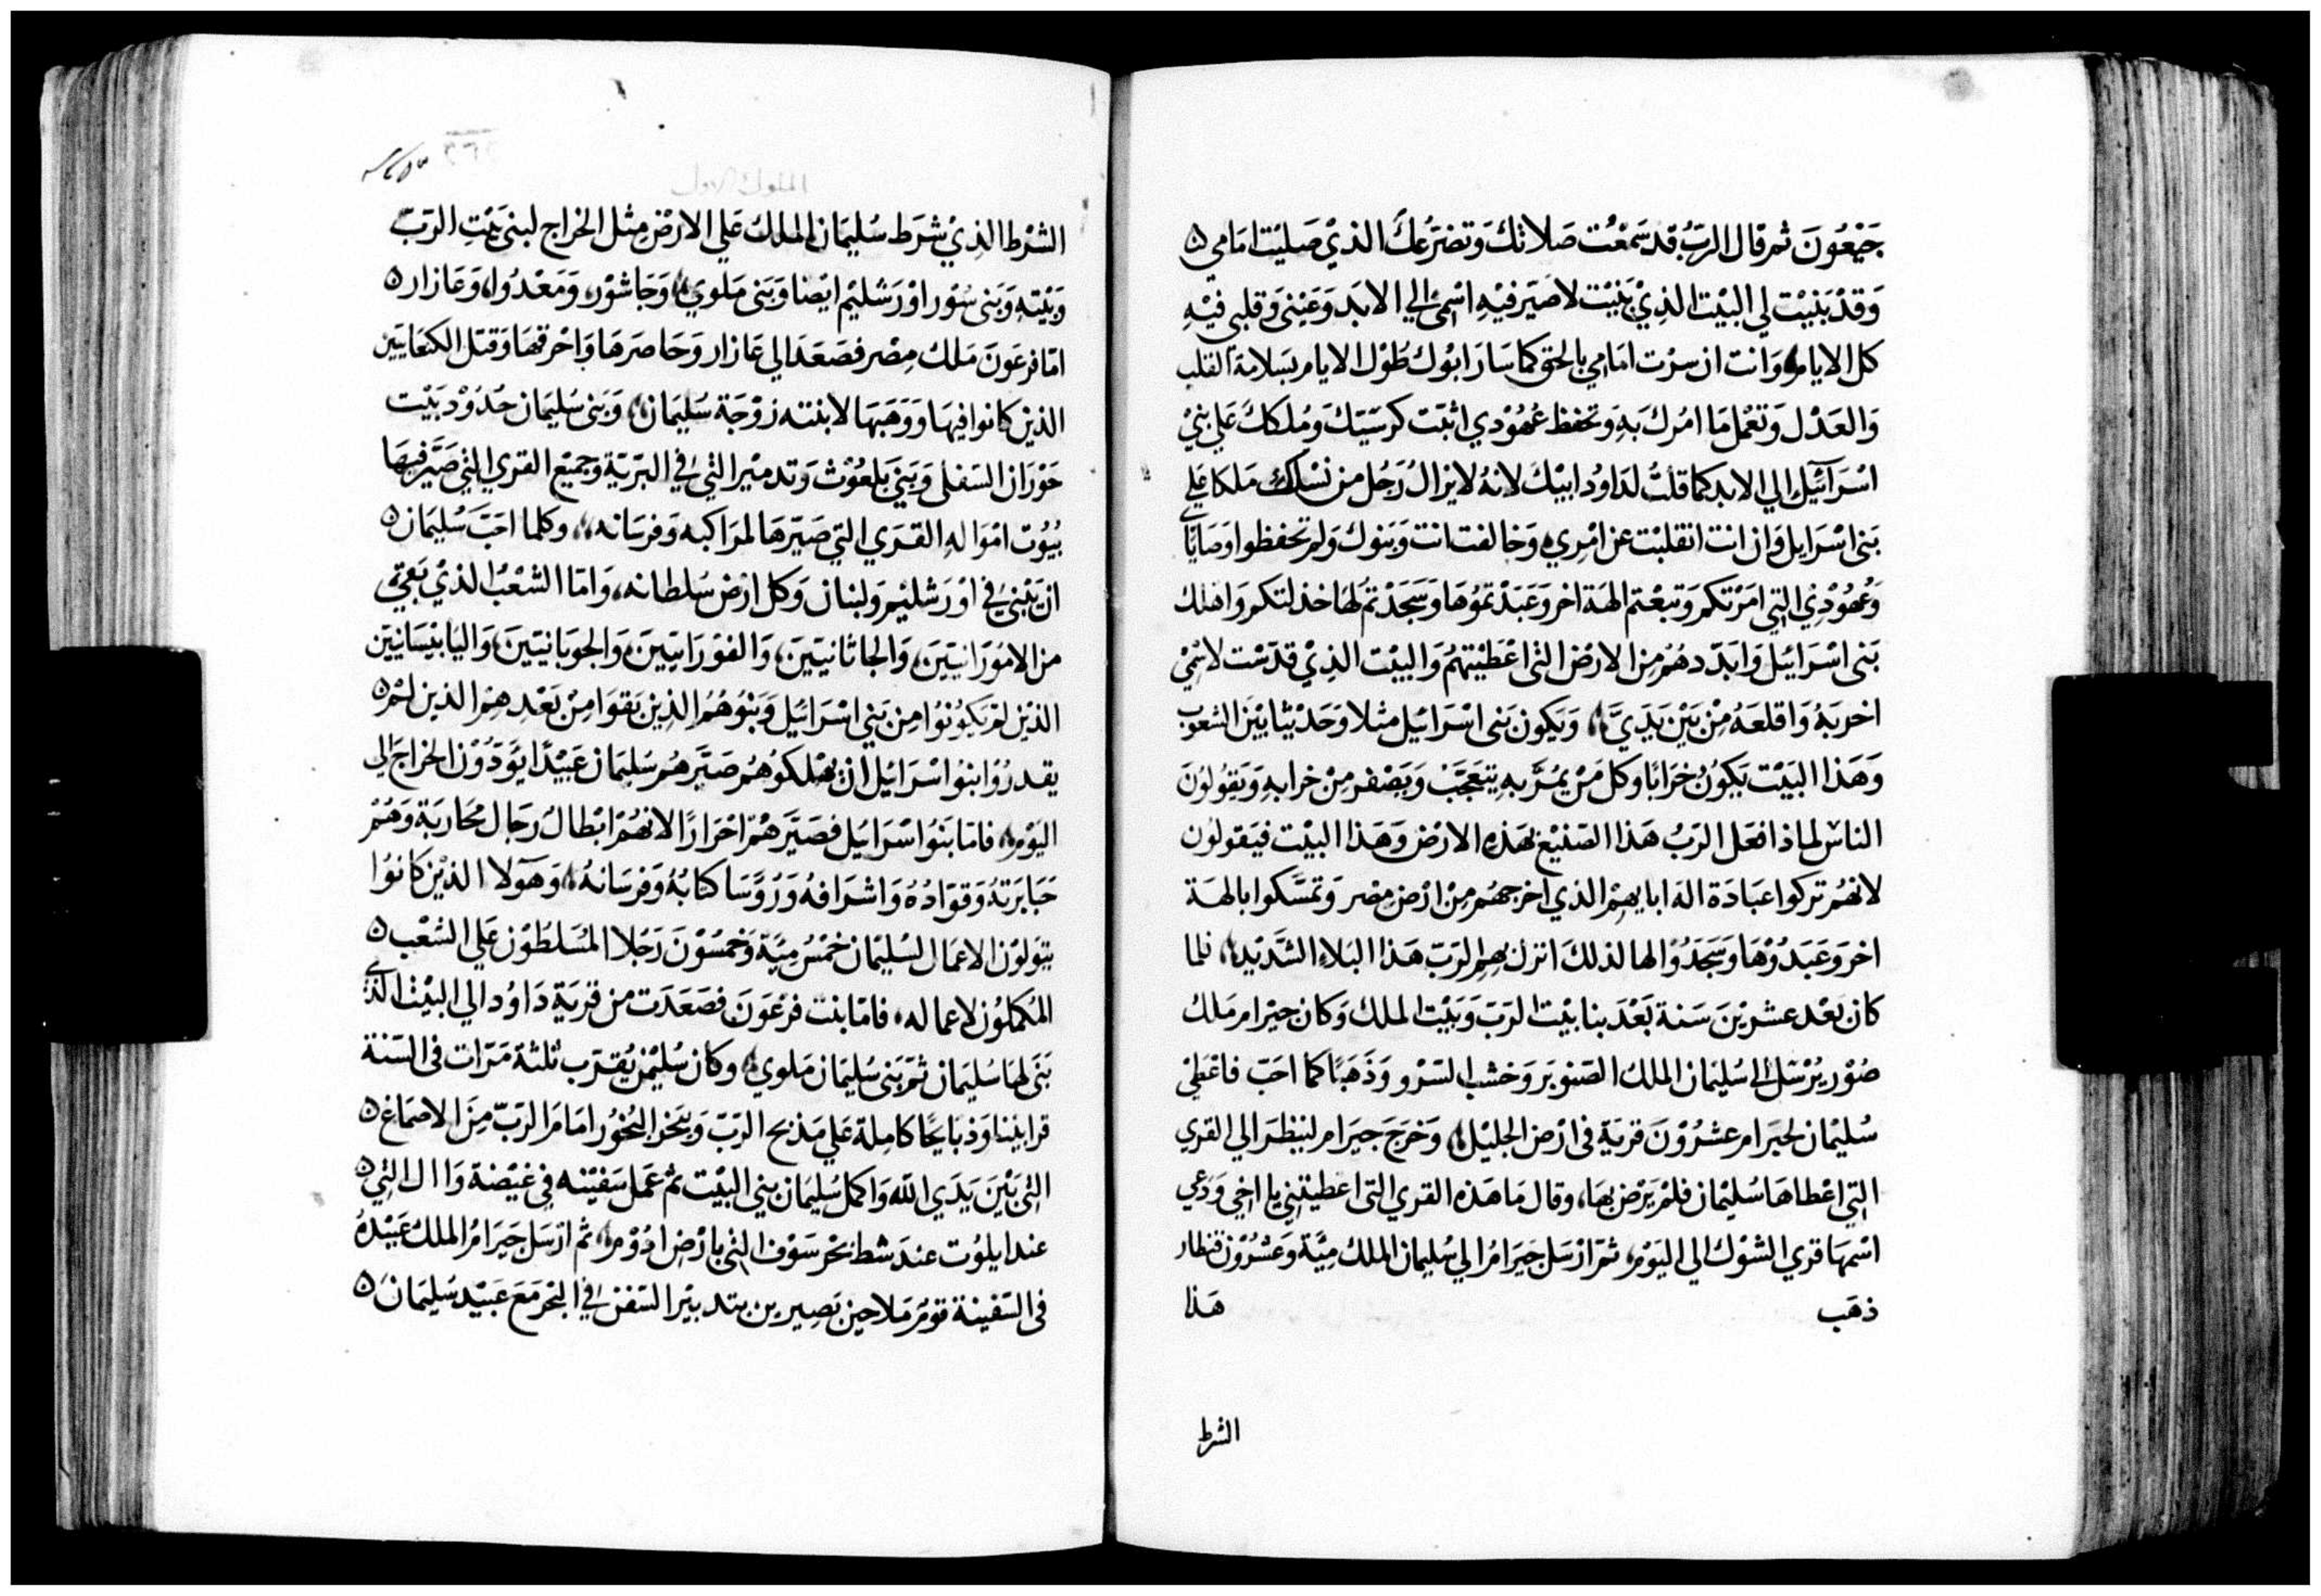 جَبْعُونَ ثم قال الربُّ قد سَمعْت صَلاتكَ وَتضرّعكَ الذيْ صَليْت امَامي
وَقدْ بَنيْت لي البيْت الذِيْ بَنيْت لاصَير فيْهِ اسْمىْ الي الابَد وَعَيْني وَقلبي فيْهِ
كل الايام وَانت ان سرْت امَامي بالحق كما سَارَ ابوُك طوْل الايام بسَلامة القلب
وَالعَدْل وَتعْمل مَا امُرك بهِ وَتحفظ عُهوُدي اثبَت كرسَيّكَ وَملككَ عَلي بَنيْ
اسْرَآئيل الي الابد كما قلتُ لدَاوُد ابيْكَ لانهُ لايزالُ رَجُل من نسْلكَ مَلكا عَلي
بَنى اسْرَايل وَان انت انقلبْت عن امْري وَخالفت انت وَبَنوُك وَلم تحفظوا وَصَايَايَ
وَعُهوُدِي التي امَرْتكم وَتبعْتم الهَة اخر وَعَبَدْتموُهَا وَسَجَدْتم لهَا خذلتكم وَاهلك
بَنى اسْرَائيل وَابَدّدهُم مِن الارْض التى اعْطيْتهُم وَالبيْت الذِيْ قدّسْت لاسْمِيْ
اخربَهُ وَاقلعَهُ مِنْ بَيْن يَدَيَّ وَيَكون بَنى اسْرَائيل مثلا وَحَدْيثا بَيْن الشعوب
وَهَذا البَيْت يَكوُنُ خرَابًا وكل مَنْ يَمُرُّ بهِ يتعَجّبْ وَيَصْفر مِنْ خرابهِ وَيَقوُلوُنَ
الناسْ لماذا فعَل الربُ هَذا الصَنيْع بهَذهِ الارْض وَهَذا البيْت فيَقولوُن
لانهُم تركوا عبَادَة اله ابايهِم الذي اخرجهُم مِنْ ارْض مِصْر وَتمَسَّكوا بالهَة
اخر وَعَبَدُوْهَا وَسَجَدُوْا لها لذلكَ انزل بهِم الربّ هَذا البَلاء الشَّدِيْد فلما
كان بَعْد عشريْنَ سَنة بَعْدَ بنا بَيْت الربّ وَبَيْت الملك وَكان حيْرام مَلك
صُوْر يُرْسَل الي سُليمَان الملك الصَنوبَر وَخشب السَرْو وَذهَبًا كما احَبّ فاعْطيْ
سُليْمان لحيَرام عشرُوْنَ قريَة فى ارْض الجليْل وَخرَجَ حيَرام لينظرَ الي القري
التي اعْطاهَا سُليْمان فلمْ يَرْض بهَا، وقال مَا هَذه القري التى اعطيتني يا اخِي وَدُعي
اسْمهَا قري الشوْك الي اليَوْم، ثمّ ارْسَل حيَرامُ الي سُليمان الملك مِيَّة وَعشرُوْن قنطار
ذهَب هَذا
الشرط
الملوك الاول
الشرْط الذِيْ شرَط سُليمَان الملك عَلي الارْض مِثل الخراج ليبنى بَيْتِ الربّ
وَبَيْتهِ وَبَنى سُوْر اوْرَشليْم ايْضا وَبَنى مَلوي وَجَاشوْر، وَمَعْدُوا، وَعَازار
امّا فرعَونَ مَلك مِصْر فصَعَدَ الي عَازار وَحَاصَرهَا وَاحْرقهَا وَقتل الكنعَانيّين
الذين كانوا فيهَا وَوَهَبَهَا لابنته زوْجَة سُليمَان، وَبَنى سُليمَان حُدُوْد بَيْت
حَوْرَان السَفلى وَبَنيَ بَلعُوْث وَتدميْر التى في البَريّة وَجميْع القري التي صَيَّر فيهَا
بيُوُت امْوَالهِ القري التي صَيّرهَا لمرَاكبه وَفرسَانه، وكلما احَبّ سُليمَان
ان يَبْنيَ في اوْرَشليْم وَلبنان وَكل ارْض سُلطانه، وَامّا الشعْبُ الذيْ بَقيَ
من الامُوْرَانيّيَن، وَالجاثانيّيَن، وَالفوْرَانيّيَن، وَالجوبَانيّيَن، وَاليَابيْسَانيّيَن
الذيْن لمْ يَكوُنوُا مِن بَني اسْرَائيل وَبَنوُهُم الذِين بَقوَا مِنْ بَعْدِهِم الذين لم
يقدرُوُا بنوُا اسْرَائيل ان يهْلكوُهُم صَيَّرهُم سُليمَان عَبيْدًا يَؤدّوُنْ الخراجَ الي
اليَوْم، فامّا بَنوُا اسْرَائيل فصَيَّرهُمْ احْرَارًا لانهُمْ ابْطال رجَال مُحَاربَة وَهُمْ
جَبَابرتهُ وَقوَّادُهُ وَاشرَافهُ وَرُؤسَا كتابُهُ وَفرسَانهُ، وَهَوَلا الذيْن كانوُا
يتوَلوْن الاعمَال لسُليْمان خمْسُ مِيَّة وَخمسُوْنَ رَجُلا المُسَلطوْن عَلي الشعْب
المُكملوُن لاعماله، فامّا بنت فرْعَونَ فصَعَدَت من قريَة دَاوُد الي البيْت الذي
بَنىَ لهَا سُليمَان ثم بَنى سُليمَان مَلوي وكان سُليْمٰن يُقرّب ثلثة مَرّات فى السَنة
قرابيْنا وَذبَايحًا كامِلة عَلي مَذبح الربّ وَيبَخر البُخوُر امَامَ الربّ مِنَ الاصمَاغ
التْى بَيْنَ يَدَي اللّه وَاكمل سُليمَان بني البَيْت ثم عَمَل سَفيْنه فِي غيْضة وَاال التي
عند ايلوُت عندَ شط بَحْر سَوْف التى بارْض ادُوْم، ثم ارْسَل حيَرامُ الملك عَبيْدهُ
فى السَفينة قومَ مَلاحين بَصِيرين بتدبيْر السَفن في البَحْر مَعَ عَبيْد سُليمَان